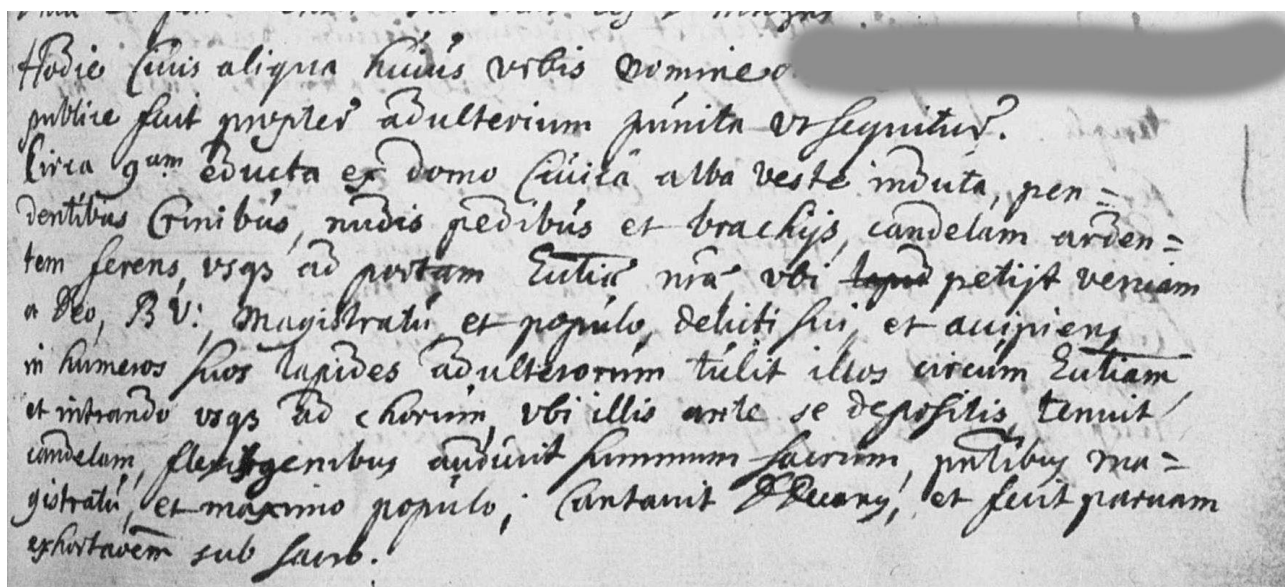 Hodie Civis aliqua huius vrbis nomine
publice fuit propter adulterium punita vt sequitur.
Circa 9am educta ex domo Ciuica alba veste induta, pen=
dentibus Crinibus, nudis pedibus et brachijs, candelam arden=
tem ferens, vsqȝ ad portam Ecctiæ nrã vbi petijt veniam
a Deo, B V:, Magistratu et populo, delicti sui, et accipiens
in humeros suos lapides adulterorum tulit illos circum Ecctiam
et intrando vsqȝ ad chorum, vbi illis ante se depositis, tenuit
candelam, flexis genibus audiuit summum sacrum, pntibus ma=
gistratu, et maximo populo; Cantauit D Decany, et fecit paruam
exhortaoem sub sacro.